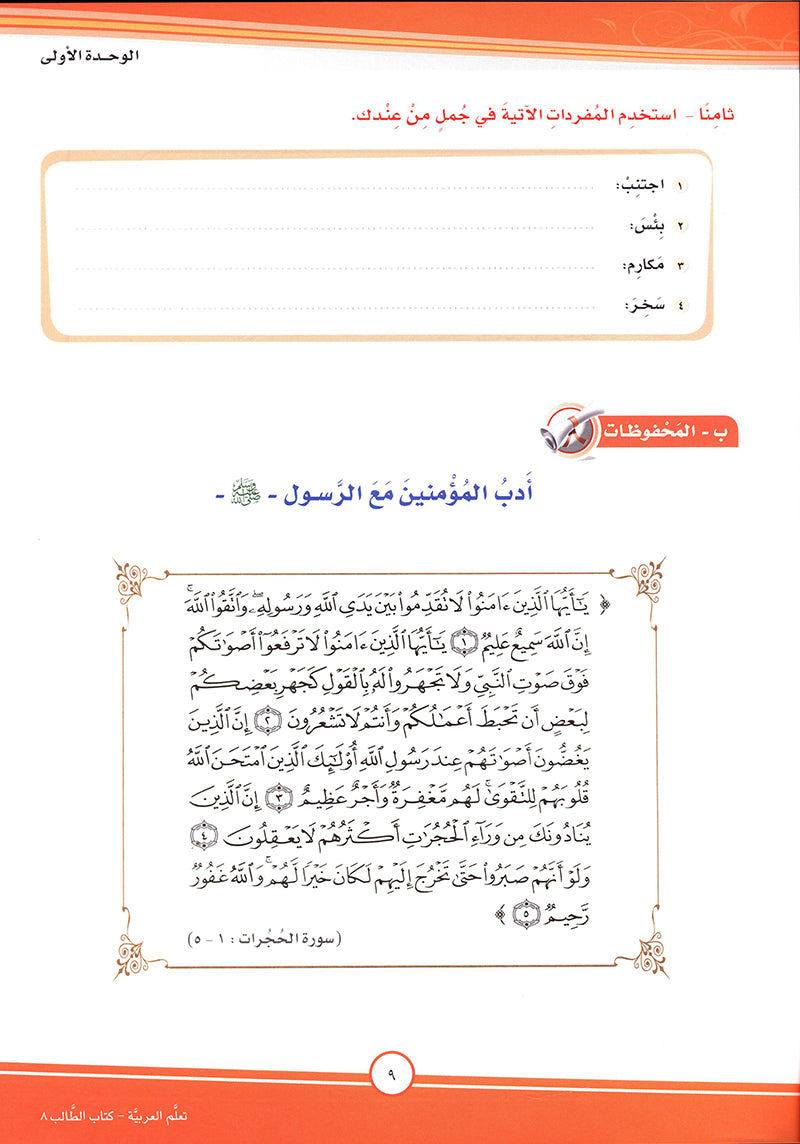 الوحـدة الأولى
ثامِنًا - استخدِم المُفرداتِ الآتيةَ في جُملٍ مِنْ عِنْدك.
١ اجتنِبْ: ................
٢ بِئْسَ: ................
٣ مَكارِم: ................
٤ سَخِرَ: ................
ب - المَحْفوظات
أَدبُ المُؤْمنينَ مَعَ الرَّسول - ﷺ -
﴿ يَـٰٓأَيُّهَا ٱلَّذِينَ ءَامَنُوا۟ لَا تُقَدِّمُوا۟ بَيْنَ يَدَىِ ٱللَّهِ وَرَسُولِهِۦ ۖ وَٱتَّقُوا۟ ٱللَّهَ ۚ
إِنَّ ٱللَّهَ سَمِيعٌ عَلِيمٌ ١ يَـٰٓأَيُّهَا ٱلَّذِينَ ءَامَنُوا۟ لَا تَرْفَعُوٓا۟ أَصْوَٰتَكُمْ
فَوْقَ صَوْتِ ٱلنَّبِىِّ وَلَا تَجْهَرُوا۟ لَهُۥ بِٱلْقَوْلِ كَجَهْرِ بَعْضِكُمْ
لِبَعْضٍ أَن تَحْبَطَ أَعْمَـٰلُكُمْ وَأَنتُمْ لَا تَشْعُرُونَ ٢ إِنَّ ٱلَّذِينَ
يَغُضُّونَ أَصْوَٰتَهُمْ عِندَ رَسُولِ ٱللَّهِ أُو۟لَـٰٓئِكَ ٱلَّذِينَ ٱمْتَحَنَ ٱللَّهُ
قُلُوبَهُمْ لِلتَّقْوَىٰ ۚ لَهُم مَّغْفِرَةٌ وَأَجْرٌ عَظِيمٌ ٣ إِنَّ ٱلَّذِينَ
يُنَادُونَكَ مِن وَرَآءِ ٱلْحُجُرَٰتِ أَكْثَرُهُمْ لَا يَعْقِلُونَ ٤
وَلَوْ أَنَّهُمْ صَبَرُوا۟ حَتَّىٰ تَخْرُجَ إِلَيْهِمْ لَكَانَ خَيْرًا لَّهُمْ ۚ وَٱللَّهُ غَفُورٌ
رَّحِيمٌ ٥ ﴾
(سورة الحُجُرات : ١ - ٥)
٩
تعلَّم العربيَّة - كتاب الطَّالب ٨